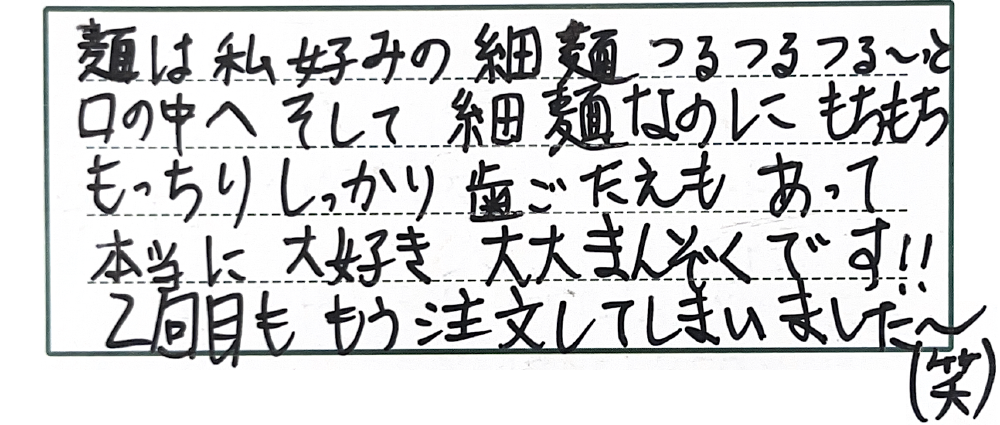 麺は私好みの細麺つるつるつる〜っと
口の中へそして細麺なのにもちもち
もっちりしっかり歯ごたえもあって
本当に大好き大大まんぞくです!!
2回目ももう注文してしまいました〜
(笑)